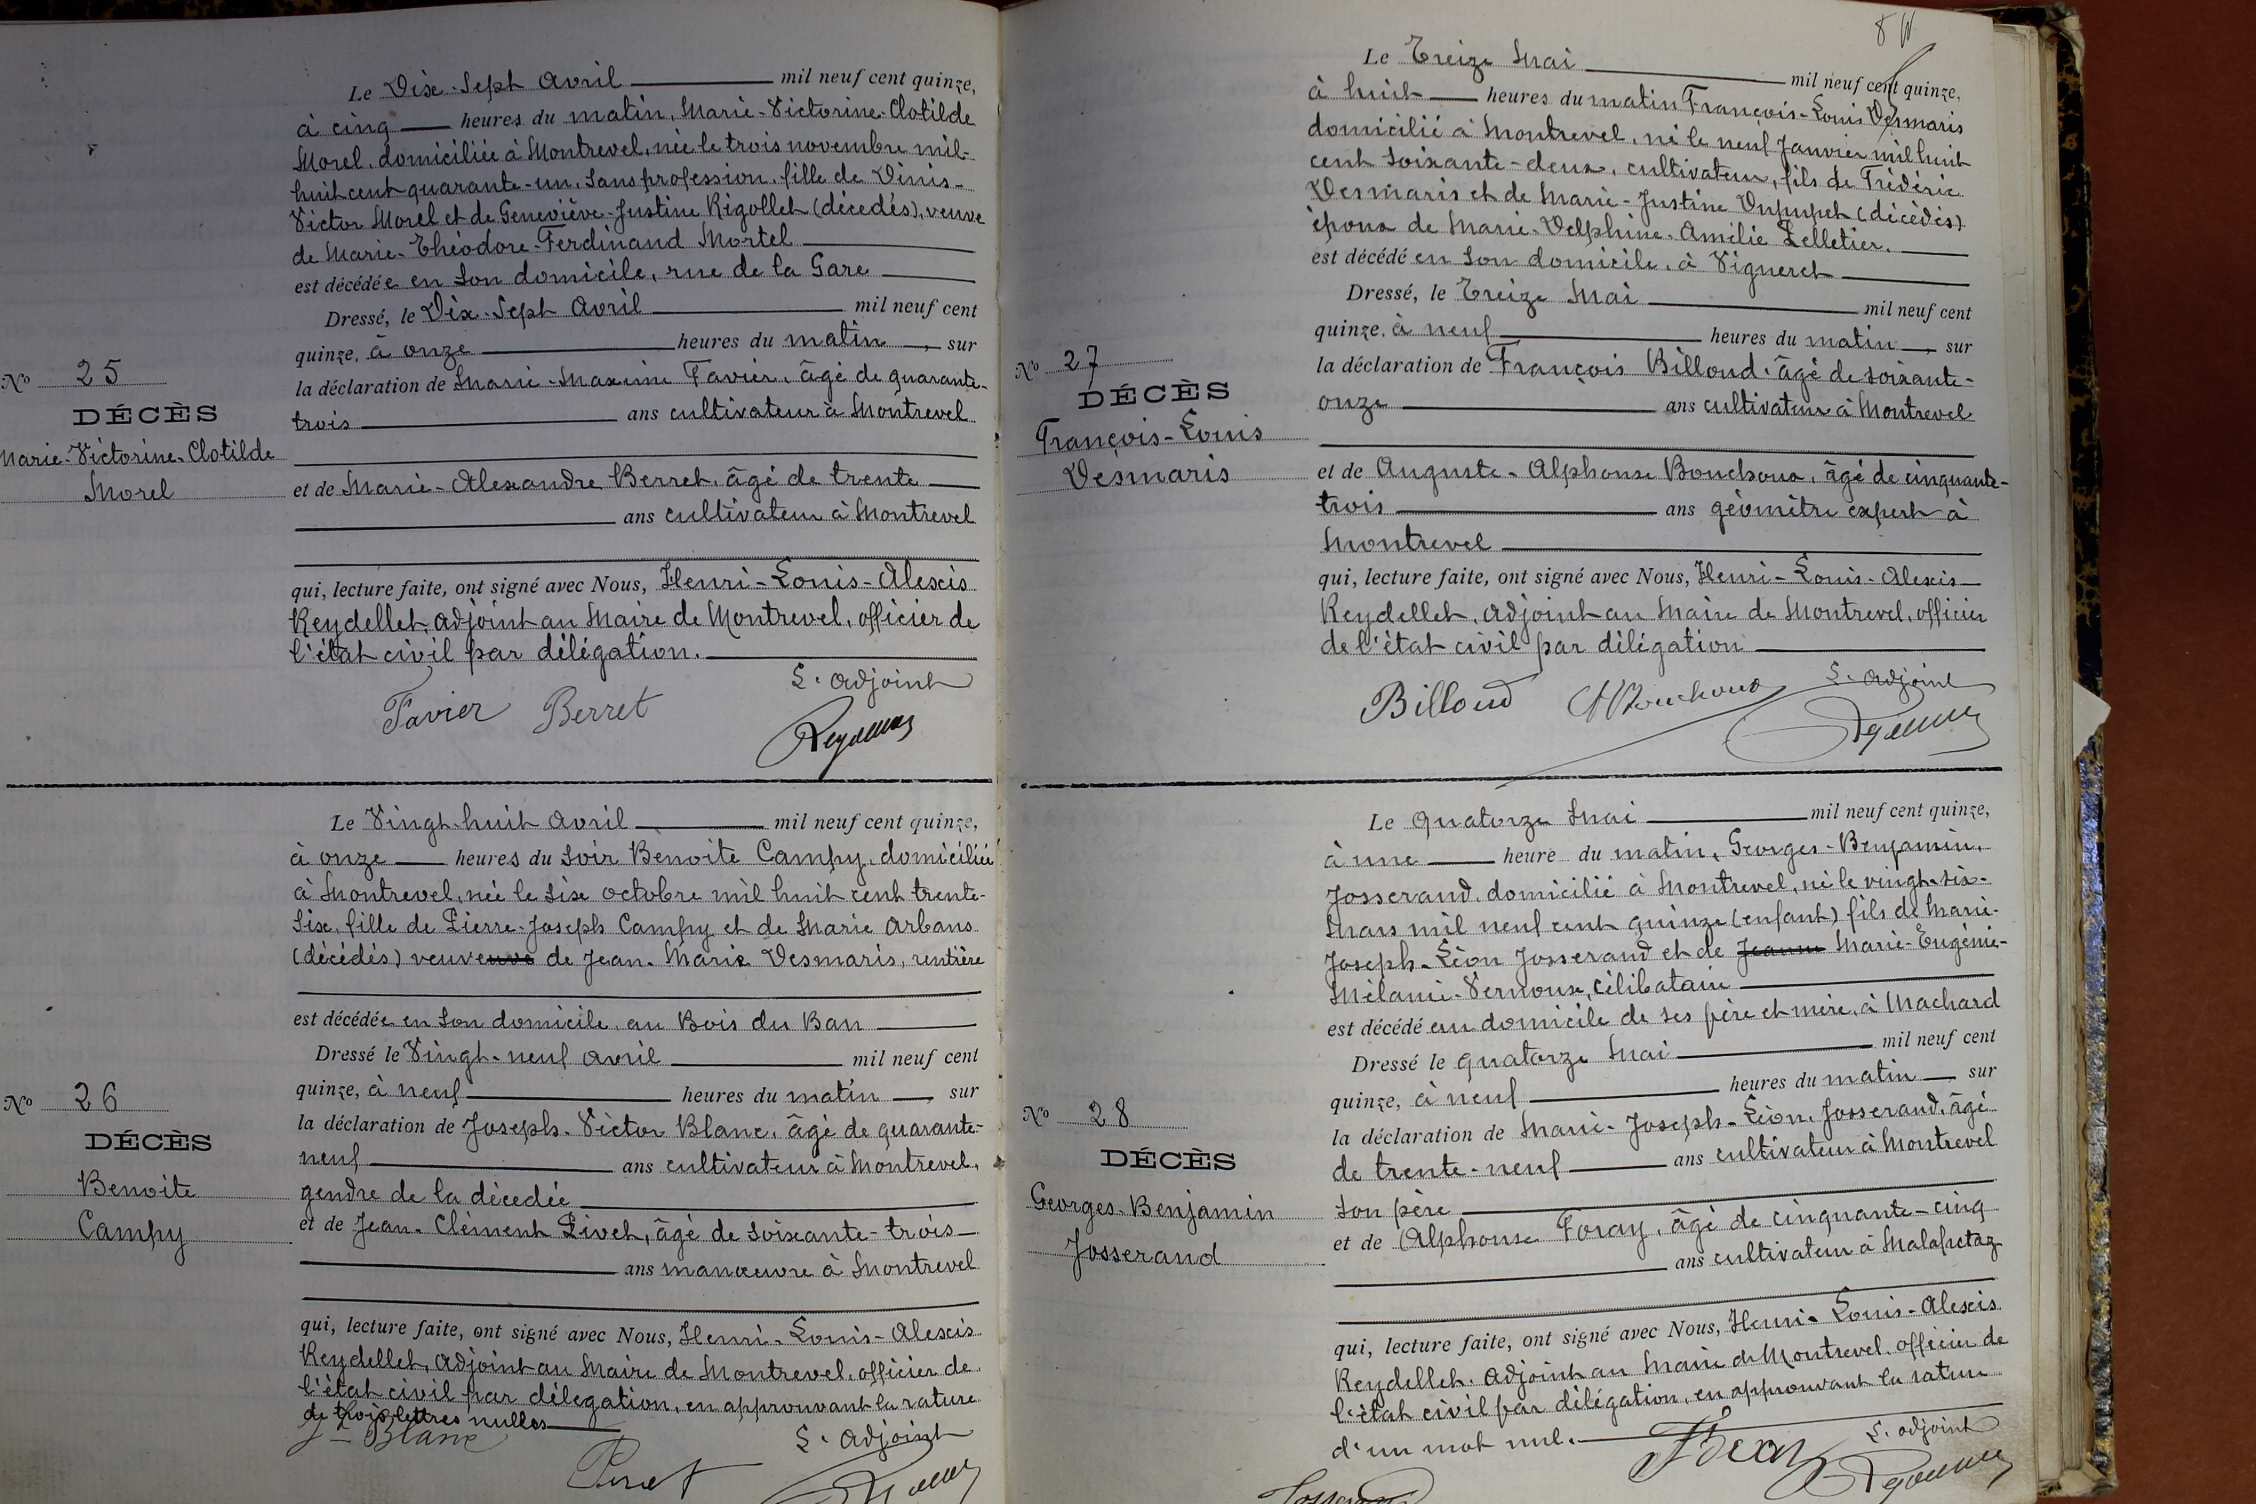 Le Dix-Sept Avril mil neuf cent quinze,
à cinq heures du matin, Marie-Victorine-Clotilde
Morel, domiciliée à Montrevel, née le trois novembre mil-
huit cent quarante-un, sans profession, fille de Dinis-
Victor Morel et de Geneviève-Justine Rigollet (décédés), veuve
de Marie-Théodore-Ferdinand Mortel
est décédée en son domicile, rue de la Gare
Dressé, le Dix-Sept Avril mil neuf cent
quinze, à onze heures du matin, sur
la déclaration de Marie-Maxime Favier, âgé de quarante-
trois ans cultivateur à Montrevel
et de Marie-Alexandre Berret, âgé de trente
ans cultivateur à Montrevel
qui, lecture faite, ont signé avec Nous, Henri-Louis-Alexis
Reydellet, adjoint au Maire de Montrevel, officier de
l'état civil par délégation.
L'adjoint
Favier Berret
No 25
DÉCÈS
Marie-Victorine-Clotilde
Morel
Le Vingt-huit Avril mil neuf cent quinze,
à onze heures du soir Benoite Campy, domiciliée
à Montrevel, née le six octobre mil huit cent trente-
six, fille de Pierre-Joseph Campy et de Marie Arbans
(décédés) veuve de Jean-Marie Desmaris, rentière
est décédée en son domicile, au Bois du Ban
Dressé le Vingt-neuf avril mil neuf cent
quinze, à neuf heures du matin, sur
la déclaration de Joseph-Victor Blanc, âgé de quarante-
neuf ans cultivateur à Montrevel,
gendre de la décedée
et de Jean-Clément Pivet, âgé de soixante-trois
ans manœuvre à Montrevel
qui, lecture faite, ont signé avec Nous, Henri-Louis-Alexis
Reydellet, adjoint au Maire de Montrevel, officier de
l'état civil par délegation, en approuvant la rature
de trois lettres nulles
L'adjoint
Blanc
No 26
DÉCÈS
Benoite
Campy
Le Treize Mai mil neuf cent quinze,
à huit heures du matin François-Louis Desmaris
domicilié à Montrevel, né le neuf Janvier mil huit
cent soixante-deux, cultivateur, fils de Frédéric
Desmaris et de Marie-Justine Dupupet (décédés)
époux de Marie-Delphine-Amélie Pelletier.
est décédé en son domicile, à Vigneret
Dressé, le Treize Mai mil neuf cent
quinze, à neuf heures du matin, sur
la déclaration de François Billoud, âgé de soixante-
onze ans cultivateur à Montrevel
et de Auguste-Alphonse Bouchoux, âgé de cinquante-
trois ans géomètre expert à
Montrevel
qui, lecture faite, ont signé avec Nous, Henri-Louis-Alexis
Reydellet, adjoint au Maire de Montrevel, officier
de l'état civil par délégation
L'adjoint
Billoud Bouchoux
No 27
DÉCÈS
François-Louis
Desmaris
Le quatorze Mai mil neuf cent quinze,
à une heure du matin, Georges-Benjamin,
Josserand, domicilié à Montrevel, né le vingt-six-
Mars mil neuf cent quinze (enfant) fils de Marie-
Joseph-Léon Josserand et de Jeanne Marie-Eugénie-
Mélanie-Vernoux, célibataire
est décédé au domicile de ses père et mère, à Machard
Dressé le quatorze Mai mil neuf cent
quinze, à neuf heures du matin, sur
la déclaration de Marie-Joseph-Léon Josserand, âgé
de trente-neuf ans cultivateur à Montrevel
son père
et de Alphonse Foray, âgé de cinquante-cinq
ans cultivateur à Malafretaz
qui, lecture faite, ont signé avec Nous, Henri-Louis-Alexis
Reydellet, adjoint au Maire de Montrevel, officier de
l'état civil par délégation, en approuvant la rature
d'un mot nul.
L'adjoint
No 28
DÉCÈS
Georges-Benjamin
Josserand